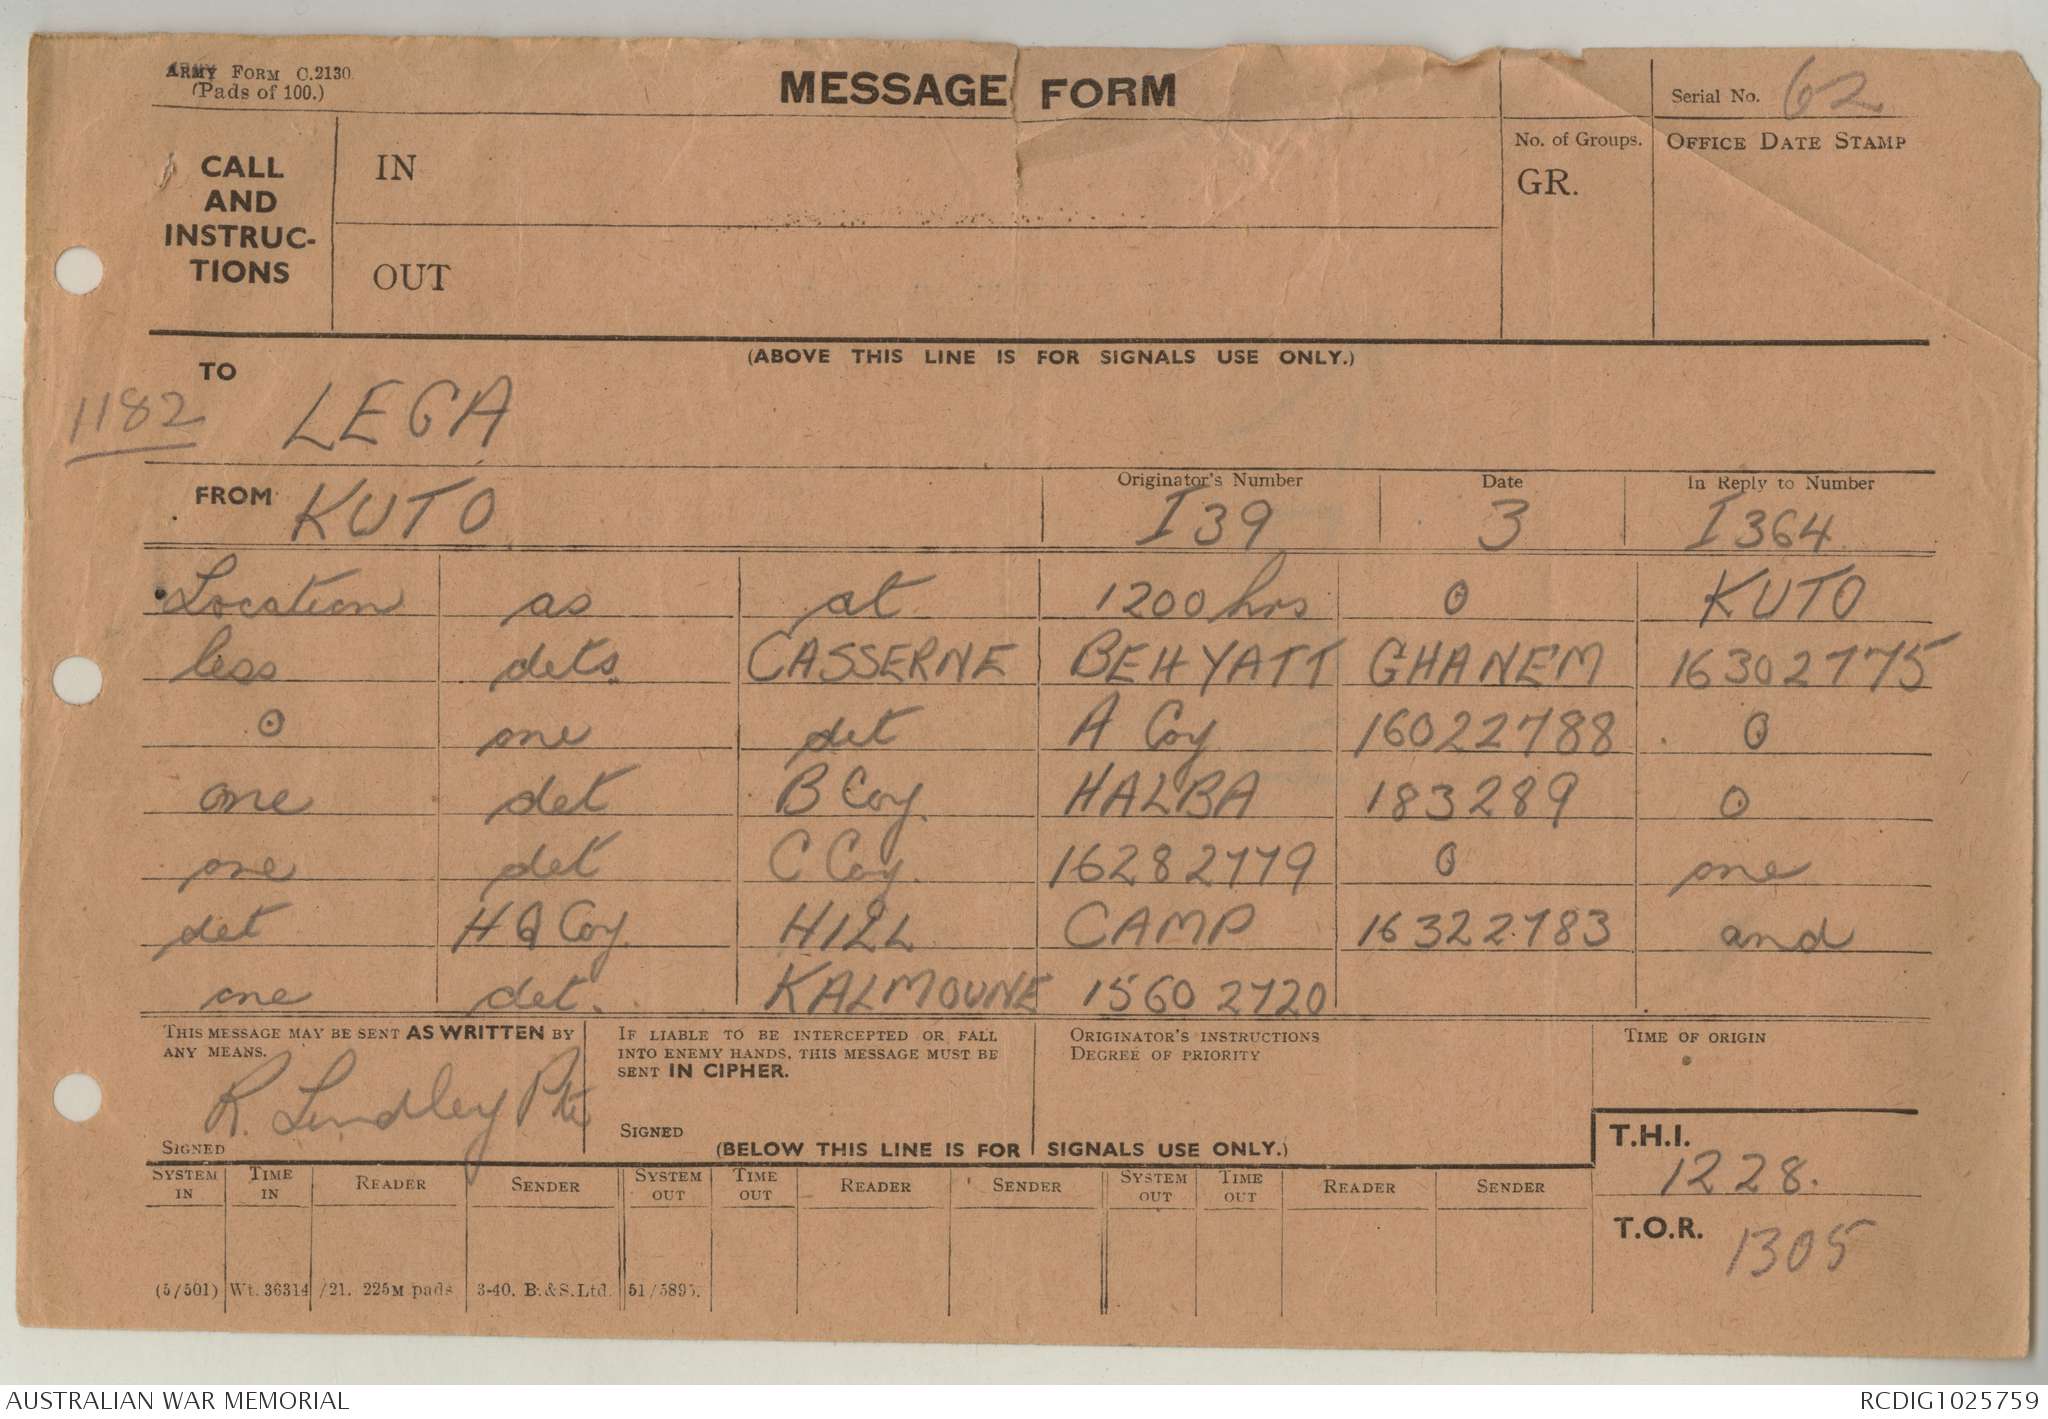 ARMY FORM C.2130.
(Pads of 100.)
MESSAGE FORM
Serial No. 62
CALL AND INSTRUC-TIONS
IN
OUT
No. of Groups.
GR.
OFFICE DATE STAMP
(ABOVE THIS LINE IS FOR SIGNALS USE ONLY.)
TO
1182 LEGA
FROM KUTO
Originator's Number I39
Date 3
In Reply to Number I364
Location as at 1200hrs 0 KUTO
less dets. CASSERNE BEHYATT GHANEM 16302775
0 one det A Coy 16022788 0
one det B Coy. HALBA 183289 0
one det C Coy. 16282779 0 one
det HQ Coy. HILL CAMP 16322783 and
one det. KALMOUNE 15602720
THIS MESSAGE MAY BE SENT AS WRITTEN BY
ANY MEANS.
R. Lindley Pte
SIGNED
IF LIABLE TO BE INTERCEPTED OR FALL
INTO ENEMY HANDS, THIS MESSAGE MUST BE
SENT IN CIPHER.
SIGNED
ORIGINATOR'S INSTRUCTIONS
DEGREE OF PRIORITY
TIME OF ORIGIN
(BELOW THIS LINE IS FOR SIGNALS USE ONLY.)
T.H.I.
1228.
T.O.R. 1305
SYSTEM IN TIME IN READER SENDER SYSTEM OUT TIME OUT READER SENDER SYSTEM OUT TIME OUT READER SENDER
(5/501) Wt. 36314/21. 225M pads 3-40. B.&S.Ltd. 51/5895.
AUSTRALIAN WAR MEMORIAL
RCDIG1025759